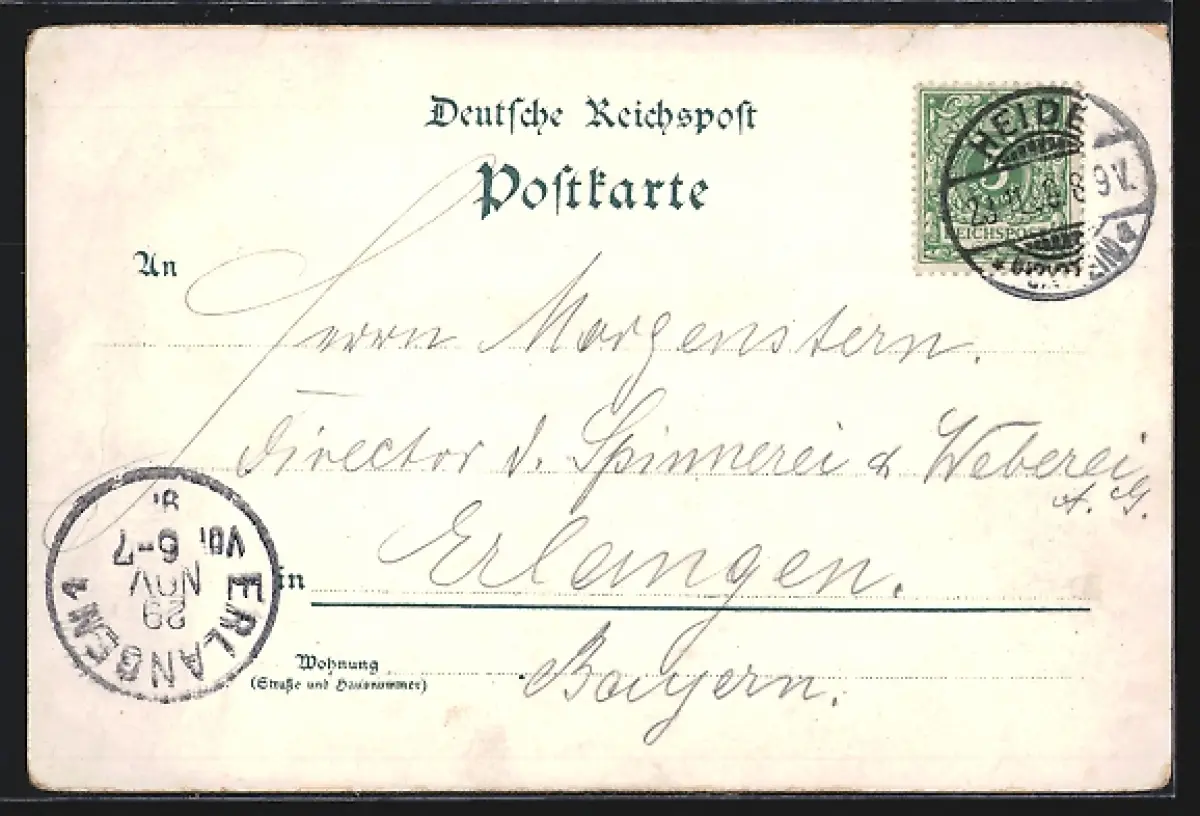 Deutsche Reichspost
Postkarte
5
REICHSPOST
HEIDE
8-9 V.
An
Herrn Morgenstern.
Director d. Spinnerei & Weberei
A. G.
in Erlangen.
Wohnung
(Straße und Hausnummer)
Bayern.
ERLANGEN 1
29
NOV
Vor 6-7